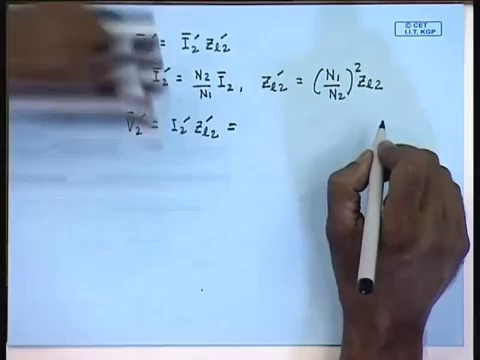 © CET
I.I.T. KGP
= Ī₂′ Z_{l2}′
Ī₂′ = N₂/N₁ Ī₂, Z_{l2}′ = (N₁/N₂)² Z_{l2}
V̄₂′ = I₂′ Z_{l2}′ =